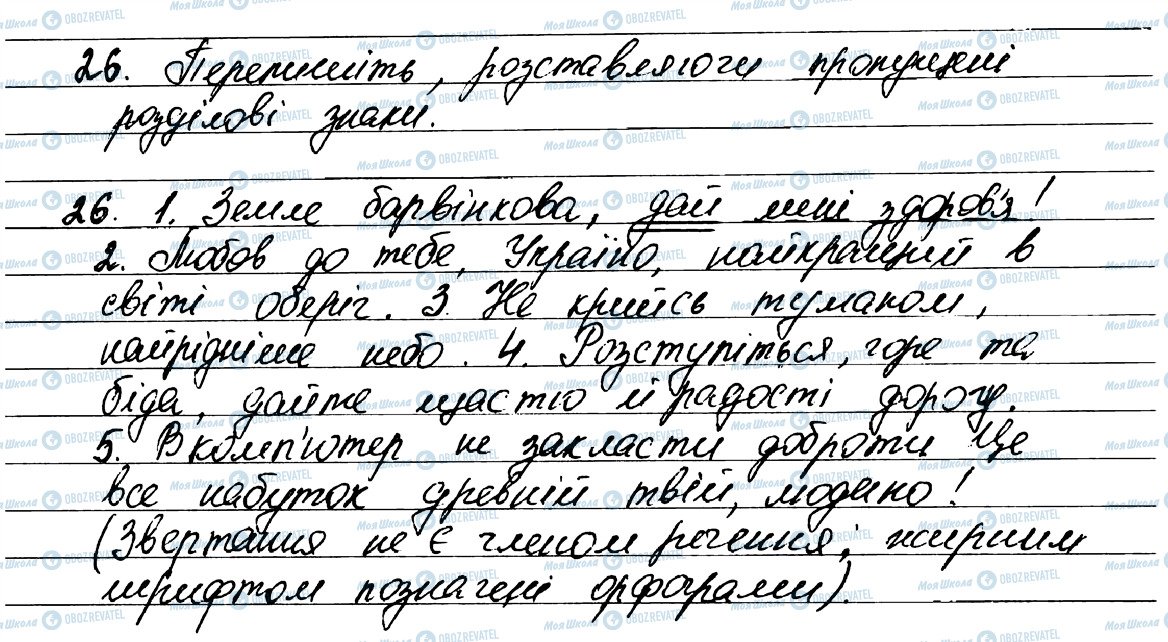 26. Перепишіть, розставляючи пропущені
розділові знаки.
26. 1. Земле барвінкова, дай мені здоров'я!
2. Любов до тебе, Україно, найкращий в
світі оберіг. 3. Не крийсь туманом,
найрідніше небо. 4. Розступіться, горе та
біда, дайте щастю й радості дорогу.
5. В комп'ютер не закласти доброти Це
все набуток древній твій, людино!
(Звертання не є членом речення, жирним
шрифтом позначені орфограми).